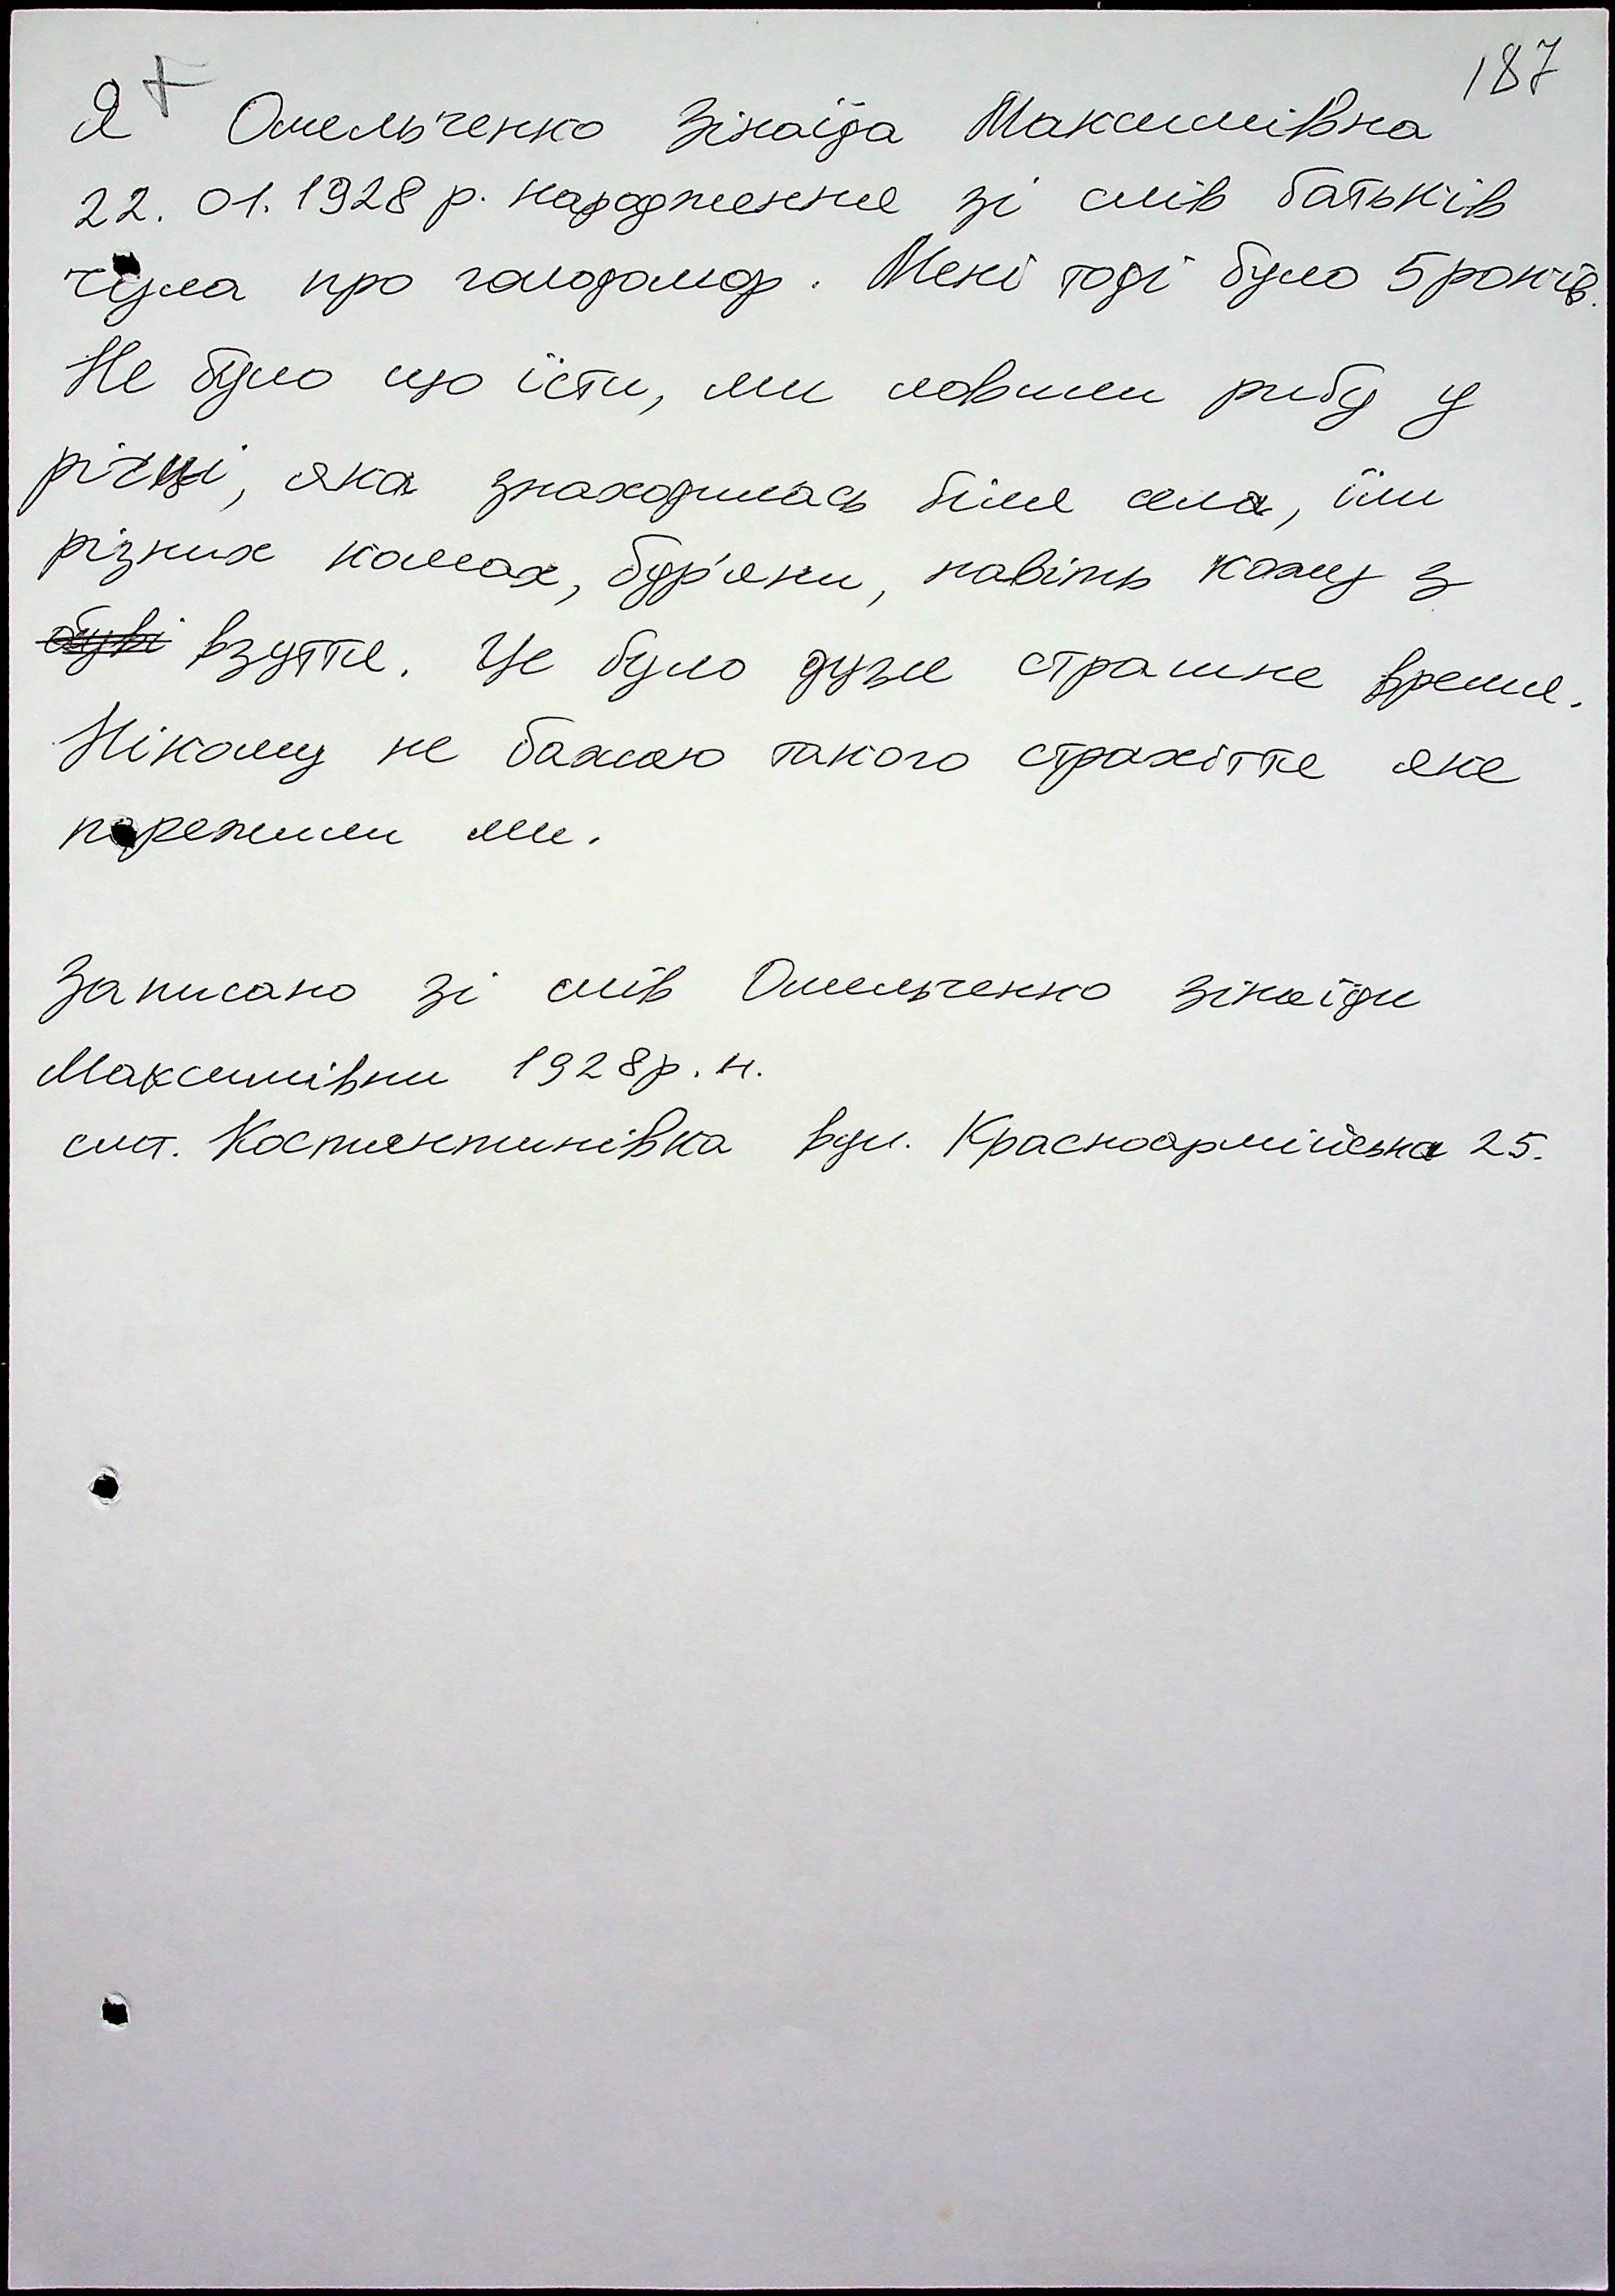 187
Я Омельченко Зінаїда Максимівна
22.01.1928 р. народження зі слів батьків
чула про голодомор. Мені тоді було 5 років.
Не було що їсти, ми ловили рибу у
річці, яка знаходилась біля села, їли
різних комах, бур'яни, навіть кожу з
обуві взуття. Це було дуже страшне время.
Нікому не бажаю такого страхіття яке
пережили ми.
Записано зі слів Омельченко Зінаїди
Максимівни 1928 р. н.
смт. Костянтинівка вул. Красноармійська 25.